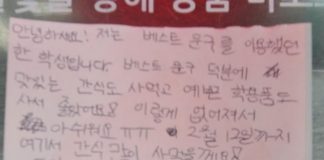 안녕하세요! 저는 베스트 문구를 이용했던
한 학생입니다. 베스트 문구 덕분에
맛있는 간식도 사먹고 예쁜 학용품도
사서 좋았어요 이렇게 없어져서
아쉬워요ㅠㅠ 2월 12일까지
여기서 간식 많이 사먹을게요